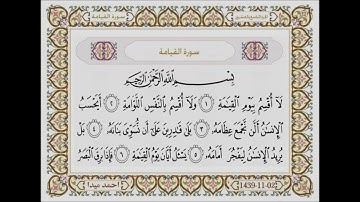 سورة القيامة
الجزء التاسع والعشرون
سورة القيامة
بِسْمِ اللَّهِ الرَّحْمَٰنِ الرَّحِيمِ
لَا أُقْسِمُ بِيَوْمِ الْقِيَامَةِ ١ وَلَا أُقْسِمُ بِالنَّفْسِ اللَّوَّامَةِ ٢ أَيَحْسَبُ
الْإِنسَانُ أَلَّن نَّجْمَعَ عِظَامَهُ ٣ بَلَىٰ قَادِرِينَ عَلَىٰ أَن نُّسَوِّيَ بَنَانَهُ ٤ بَلْ
يُرِيدُ الْإِنسَانُ لِيَفْجُرَ أَمَامَهُ ٥ يَسْأَلُ أَيَّانَ يَوْمُ الْقِيَامَةِ ٦ فَإِذَا بَرِقَ الْبَصَرُ
احمد ميدا 1439-11-02